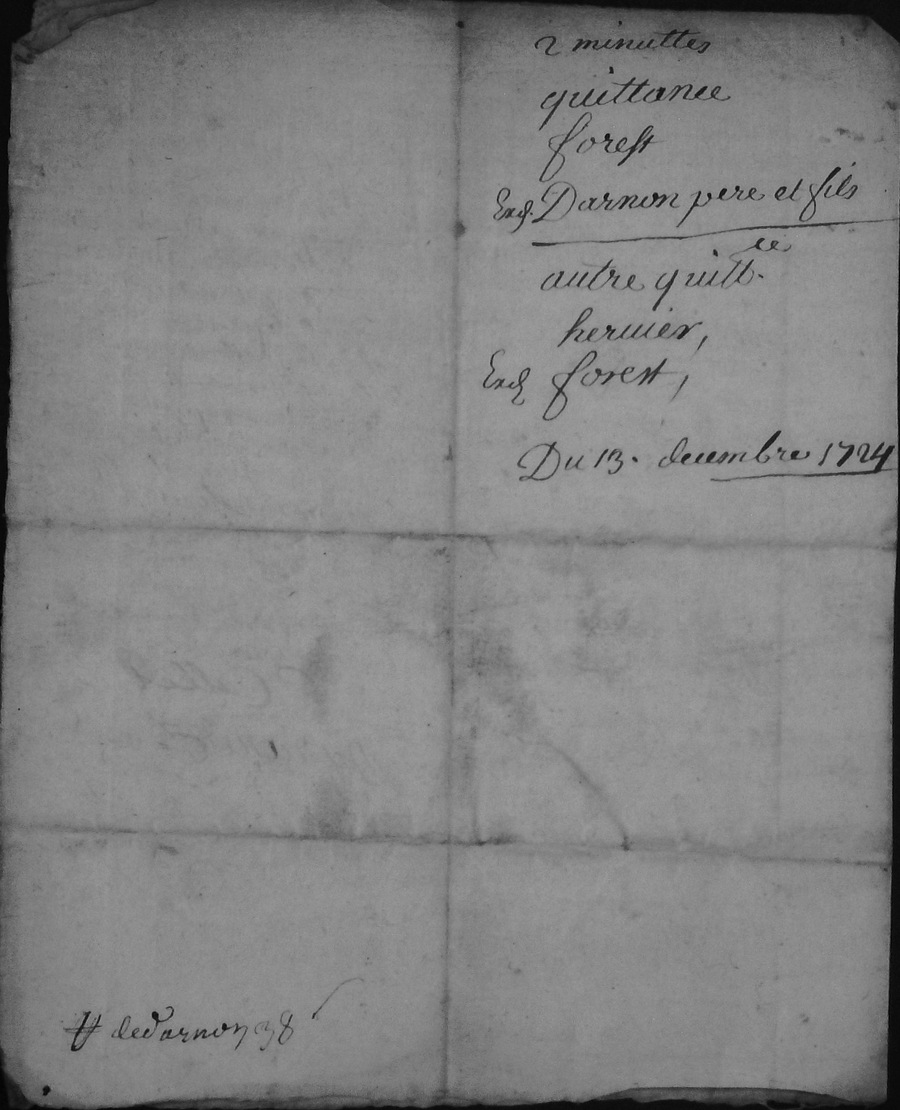 2 minuttes
quittance
forest
Exp. Darnon pere et fils
autre quitt.ce
hervier,
Exp forest,
Du 13. decembre 1724
de darnon 38